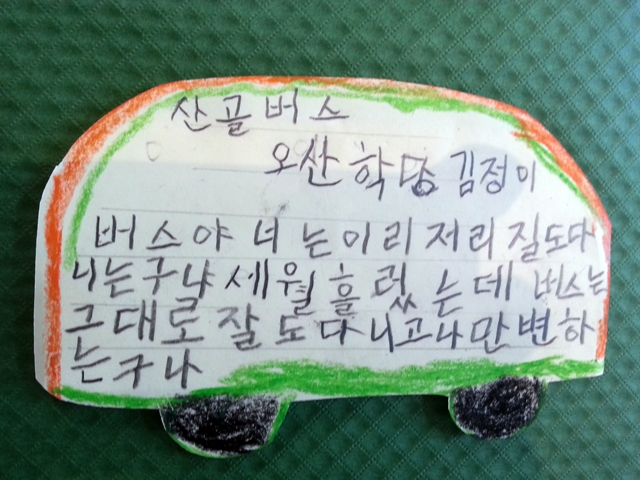 산골버스
오산학당 김정이
버스야 너는 이리저리 질도다
니는구냐 세월 흘렀는데 버스는
그대로 잘도다니고나만 변하
는구나